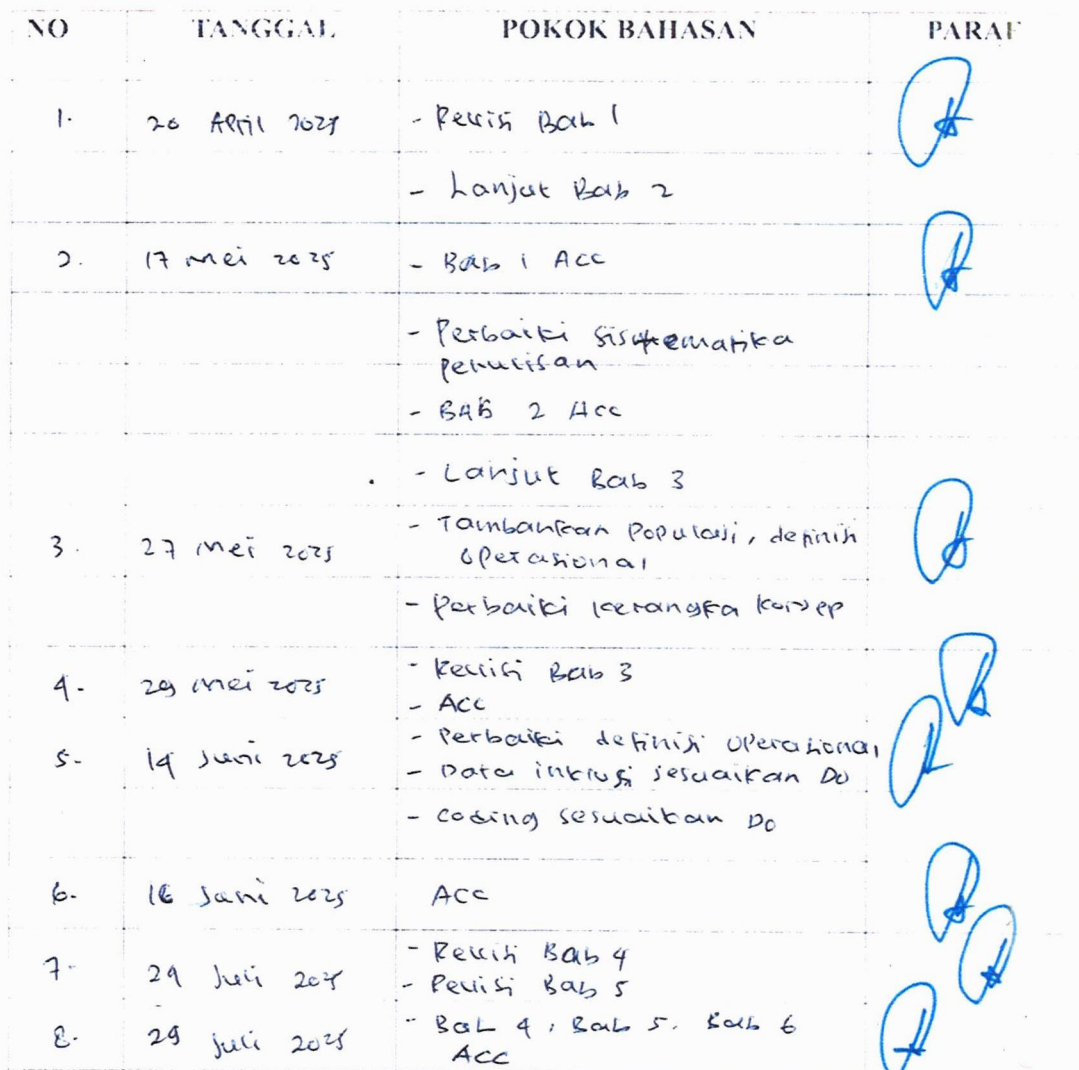 NO TANGGAL POKOK BAHASAN PARAF
1. 20 April 2025 - Revisi Bab 1
- Lanjut Bab 2
2. 17 Mei 2025 - Bab 1 Acc
- Perbaiki sistematika
penulisan
- BAB 2 Acc
- Lanjut Bab 3
3. 27 Mei 2025 - Tambahkan Populasi, definisi
operasional
- Perbaiki kerangka konsep
4. 29 Mei 2025 - Revisi Bab 3
- ACC
5. 14 Juni 2025 - Perbaiki definisi operasional
- Data inklusi sesuaikan DO
- Coding sesuaikan DO
6. 16 Juni 2025 ACC
7. 24 Juli 2025 - Revisi Bab 4
- Revisi Bab 5
8. 29 Juli 2025 - Bab 4, Bab 5, Bab 6
ACC